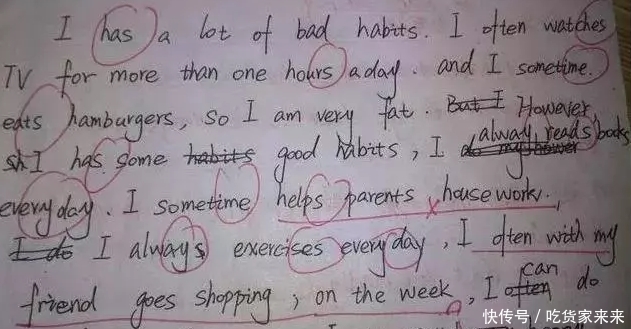 I has a lot of bad habits. I often watches
TV for more than one hours a day. and I sometime.
eats hamburgers, so I am very fat. But I However,
I has some habits good habits, I alway reads books
everyday. I sometime helps parents housework.
I do I always exercises everyday, I often with my
friend goes shopping, on the week, I often can do
快传号／吃货家来来